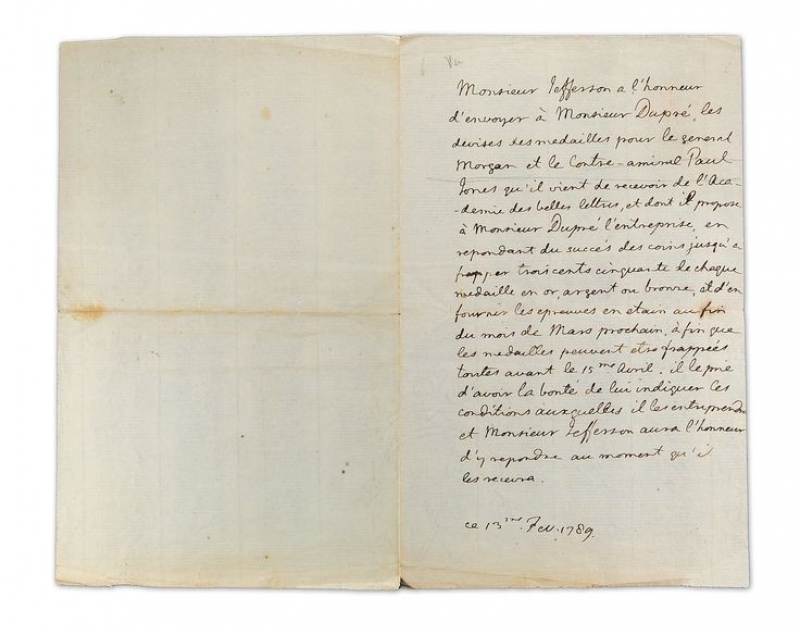 Monsieur Jefferson a l'honneur
d'envoyer à Monsieur Dupré, les
devises des medailles pour le general
Morgan et le Contre-amiral Paul
Jones qu'il vient de recevoir de l'Aca-
-demie des belles lettres, et dont il propose
à Monsieur Dupré l'entreprise, en
repondant du succès des coins jusqu'a
frapper trois cents cinquante de chaque
medaille en or, argent ou bronze, et d'en
fournir les epreuves en etain au fin
du mois de Mars prochain, à fin que
les medailles peuvent etre frappées
toutes avant le 15me Avril. il le prie
d'avoir la bonté de lui indiquer les
conditions auxquelles il les entreprendra
et Monsieur Jefferson aura l'honneur
d'y repondre au moment qu'il
les recevra.
ce 13me Fev. 1789.